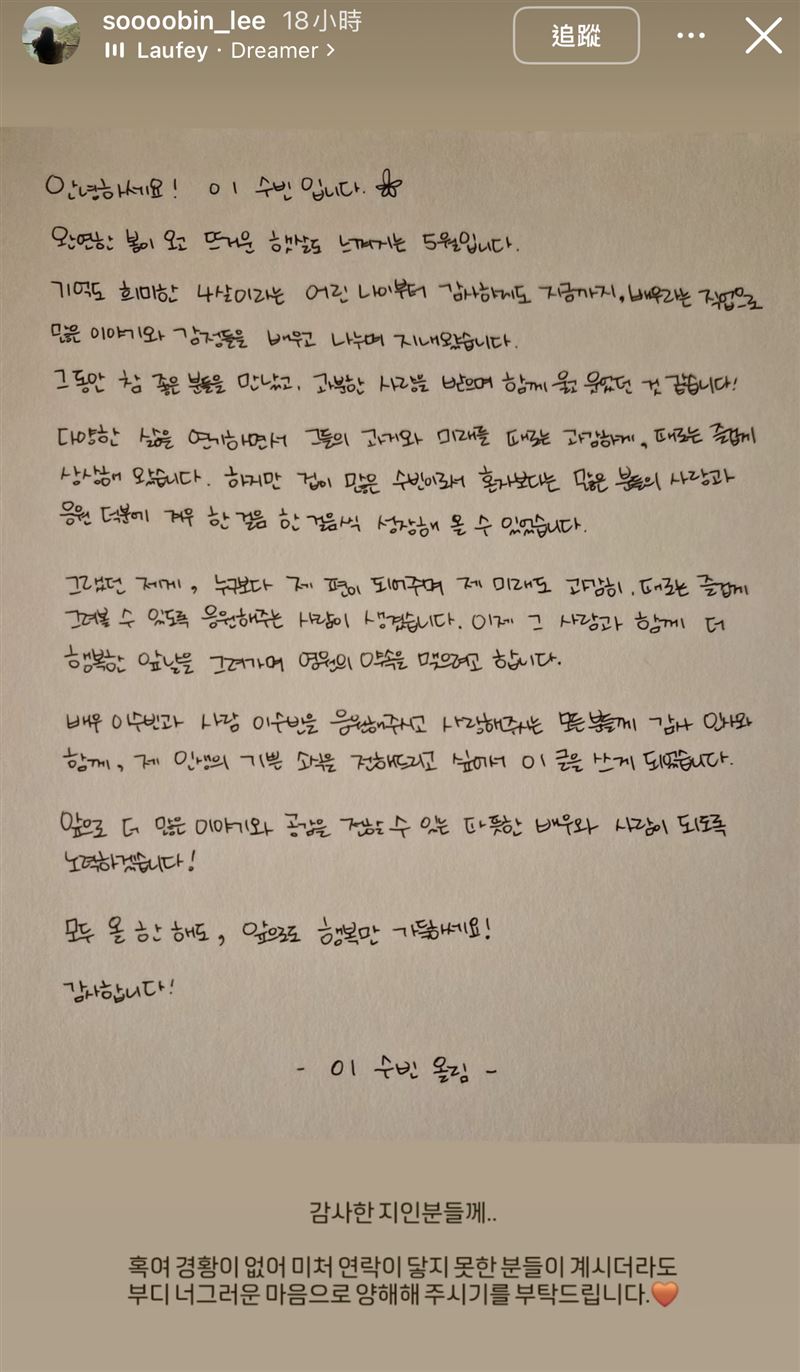 soooobin_lee 18小時
Laufey · Dreamer >
追蹤
안녕하세요! 이 수빈 입니다.
완연한 봄이 오고 뜨거운 햇살도 느껴지는 5월입니다.
기억도 희미한 4살이라는 어린 나이부터 감사하게도 지금까지, 배우라는 직업으로
많은 이야기와 감정들을 배우고 나누며 지내왔습니다.
그동안 참 좋은 분들을 만났고, 과분한 사랑을 받으며 함께 울고 웃었던 것 같습니다!
다양한 삶을 연기하면서 그들의 과거와 미래를 때로는 과감하게, 때로는 즐겁게
상상해 왔습니다. 하지만 겁이 많은 수빈이라서 혼자보다는 많은 분들의 사랑과
응원 덕분에 겨우 한 걸음 한 걸음씩 성장해 올 수 있었습니다.
그랬던 제게, 누구보다 제 편이 되어주며 제 미래도 과감히, 때로는 즐겁게
그려볼 수 있도록 응원해주는 사람이 생겼습니다. 이제 그 사람과 함께 더
행복한 앞날을 그려가며 영원의 약속을 맺으려고 합니다.
배우 이수빈과 사람 이수빈을 응원해주시고 사랑해주시는 모든 분들께 감사 인사와
함께, 제 인생의 기쁜 소식을 전해드리고 싶어서 이 글을 쓰게 되었습니다.
앞으로 더 많은 이야기와 공감을 전할 수 있는 따뜻한 배우와 사람이 되도록
노력하겠습니다!
모두 올 한 해도, 앞으로도 행복만 가득하세요!
감사합니다!
- 이 수빈 올림 -
감사한 지인분들께..
혹여 경황이 없어 미처 연락이 닿지 못한 분들이 계시더라도
부디 너그러운 마음으로 양해해 주시기를 부탁드립니다.❤️